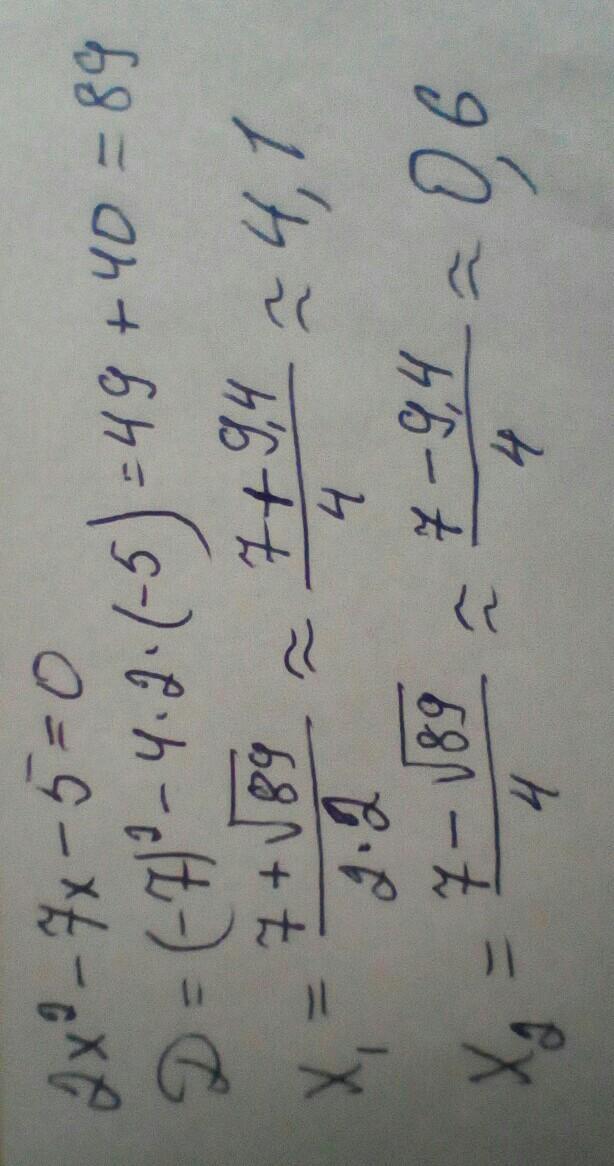 2x² - 7x - 5 = 0
D = (-7)² - 4·2·(-5) = 49 + 40 = 89
x₁ = (7 + √89)/(2·2) ≈ (7 + 9,4)/4 ≈ 4,1
x₂ = (7 - √89)/4 ≈ (7 - 9,4)/4 ≈ 0,6